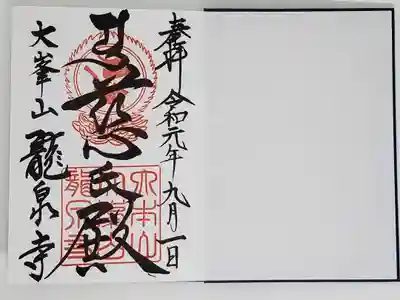 奉拝 令和元年九月一日
慈氏殿
大峯山 龍泉寺
大本山
龍泉寺